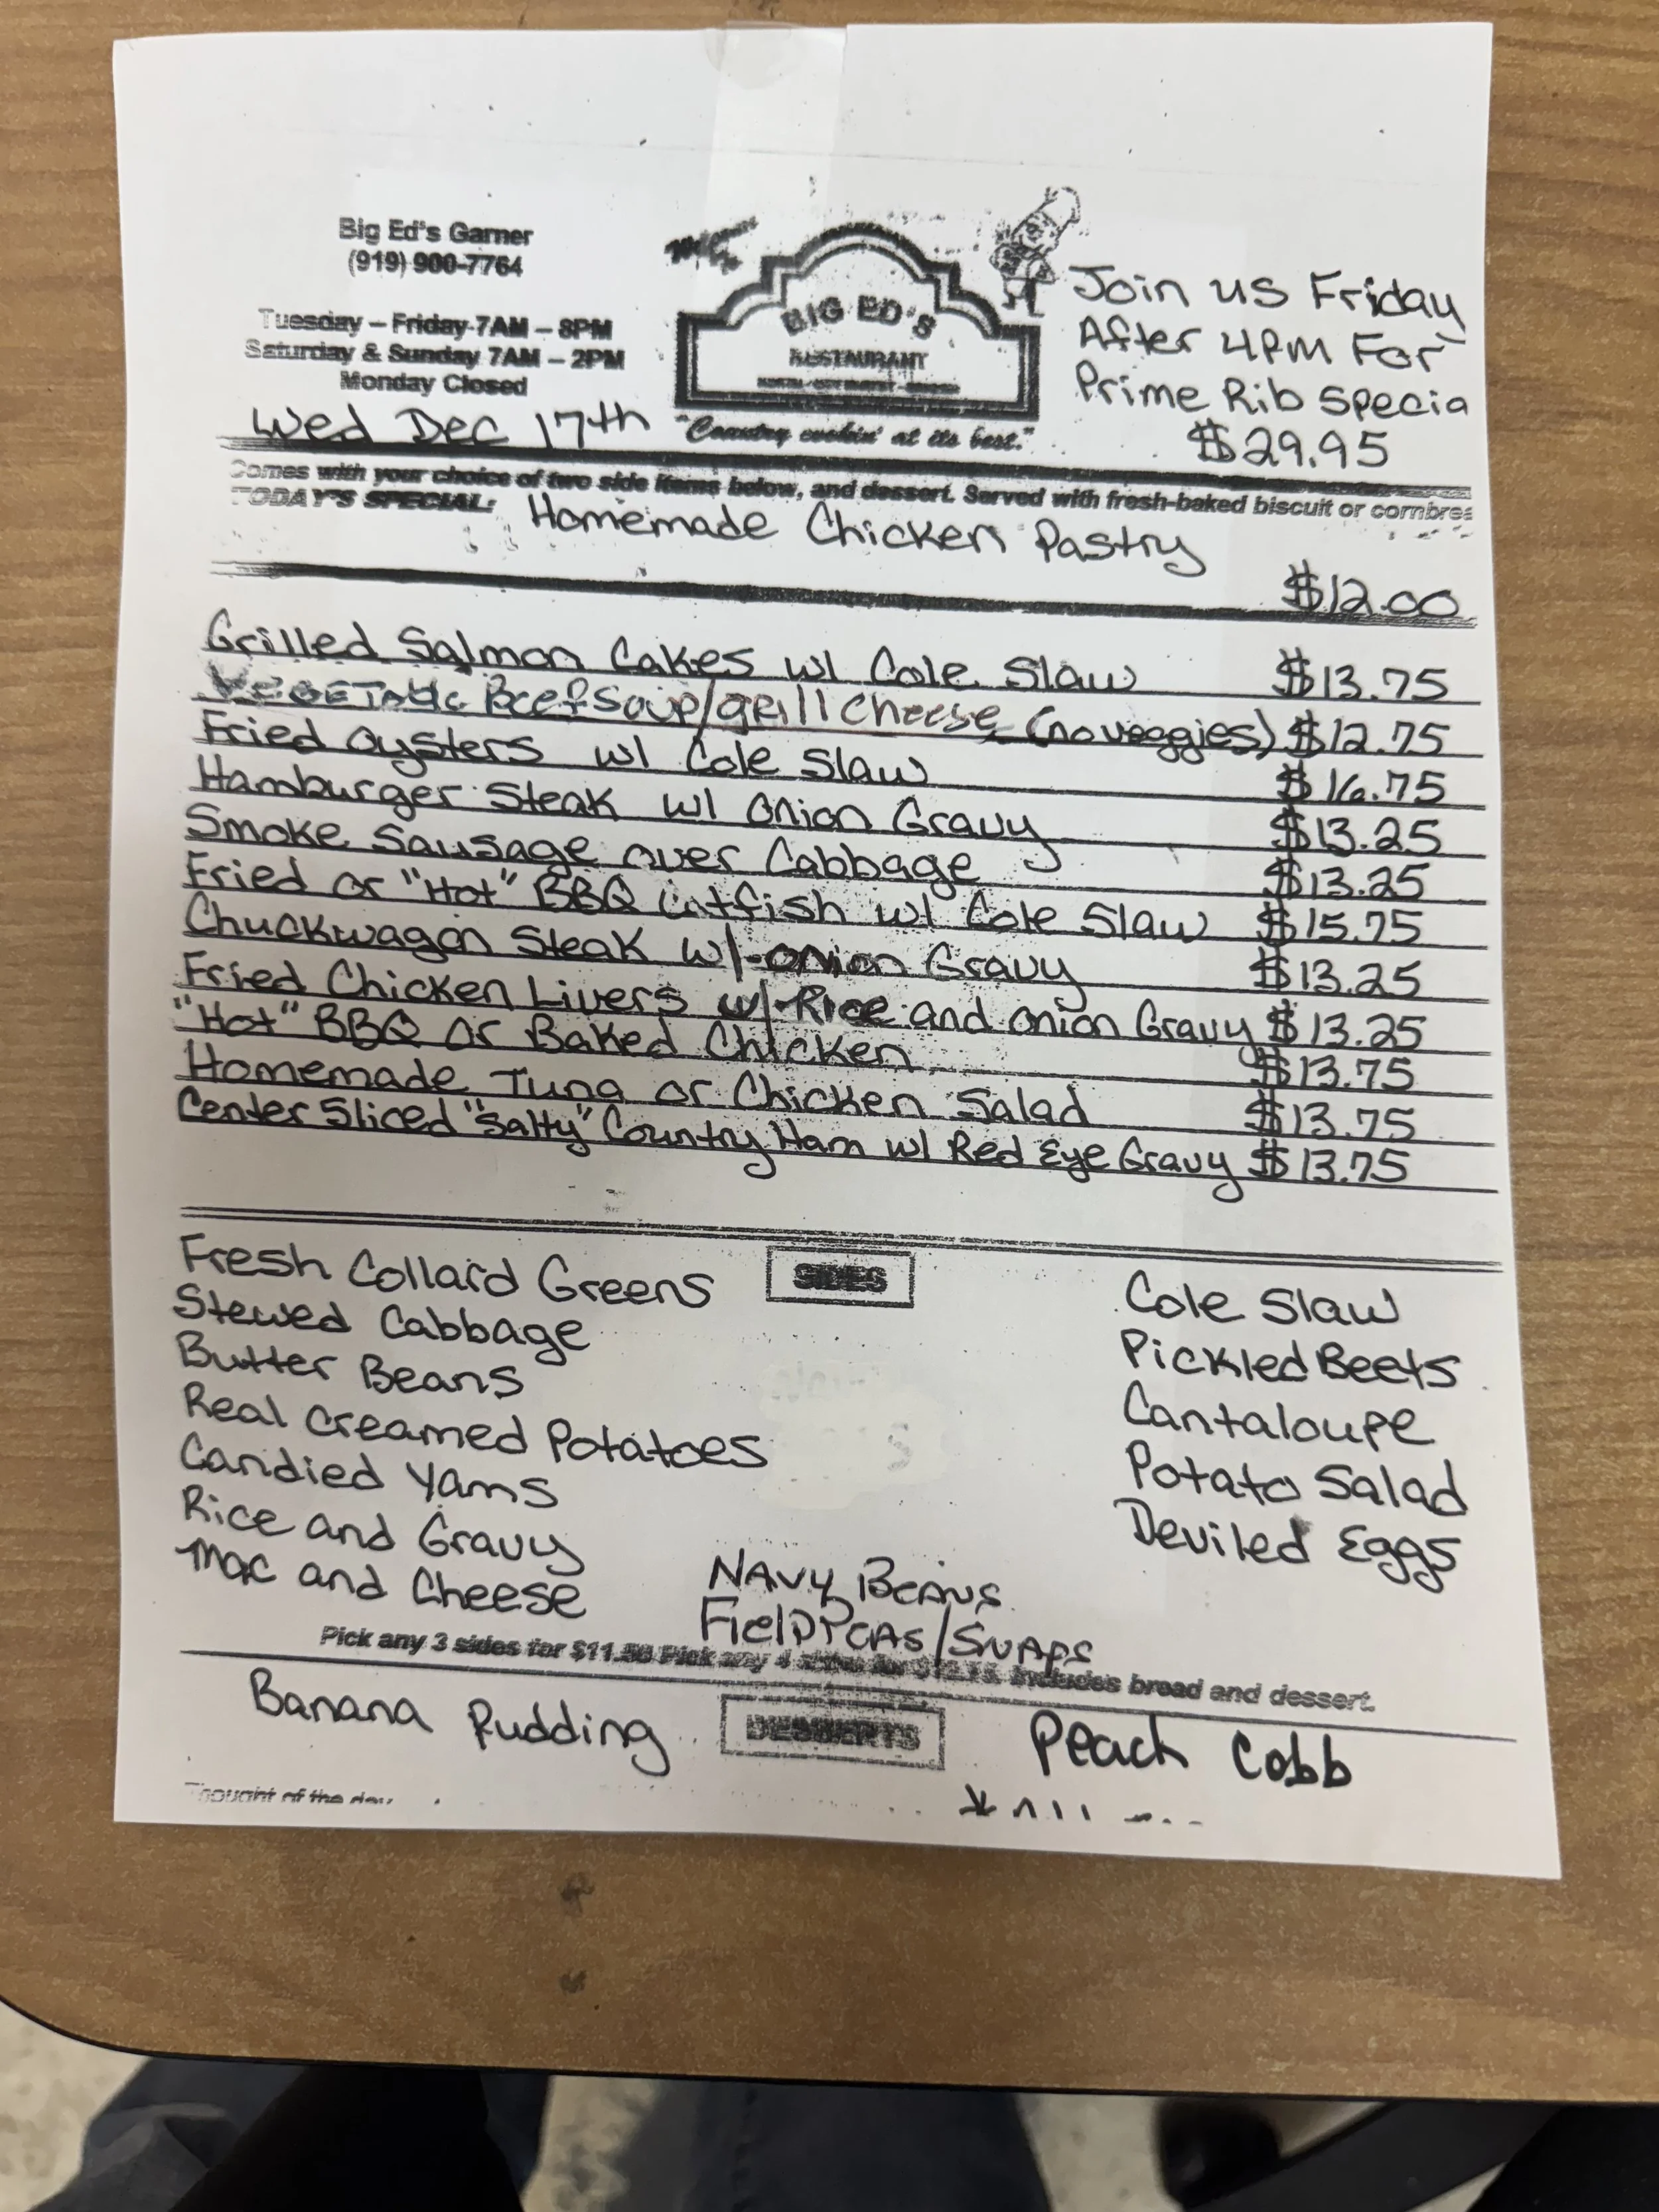 Big Ed's Garner
(919) 900-7764
Tuesday – Friday 7AM – 8PM
Saturday & Sunday 7AM – 2PM
Monday Closed
Wed Dec 17th
BIG ED'S
RESTAURANT
"Country cookin' at its best."
Join us Friday
After 4PM For
Prime Rib Specia
$29.95
Comes with your choice of two side items below, and dessert. Served with fresh-baked biscuit or cornbre
TODAY'S SPECIAL: Homemade Chicken Pastry
$12.00
Grilled Salmon Cakes w/ Cole Slaw $13.75
VEGETABLE Beef Soup/grill cheese (no veggies) $12.75
Fried Oysters w/ Cole Slaw $16.75
Hamburger Steak w/ Onion Gravy $13.25
Smoke Sausage over Cabbage $13.25
Fried or "Hot" BBQ Catfish w/ Cole Slaw $15.75
Chuckwagon Steak w/ Onion Gravy $13.25
Fried Chicken Livers w/ Rice and Onion Gravy $13.25
"Hot" BBQ Or Baked Chicken $13.75
Homemade Tuna or Chicken Salad $13.75
Center Sliced "Salty" Country Ham w/ Red Eye Gravy $13.75
SIDES
Fresh Collard Greens
Stewed Cabbage
Butter Beans
Real Creamed Potatoes
Candied Yams
Rice and Gravy
Mac and Cheese
NAVY BEANS
Field Peas/SNAPS
Cole Slaw
Pickled Beets
Cantaloupe
Potato Salad
Deviled Eggs
Pick any 3 sides for Pick any 4 sides for Includes bread and dessert.
DESSERTS
Banana Pudding
Peach Cobb
Thought of the day